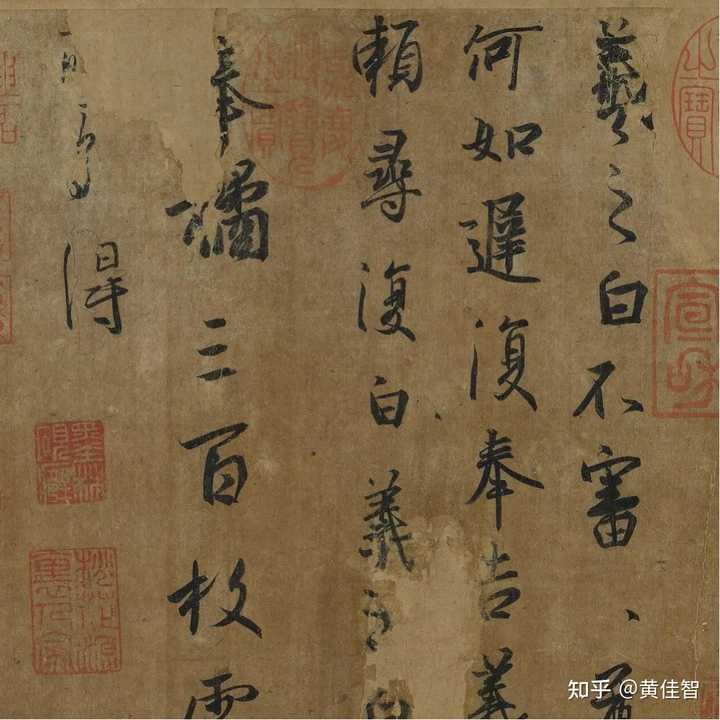 羲之白不審
何如遲復奉告羲
賴尋復白羲之白
奉橘三百枚霜
多得
知乎 @黄佳智